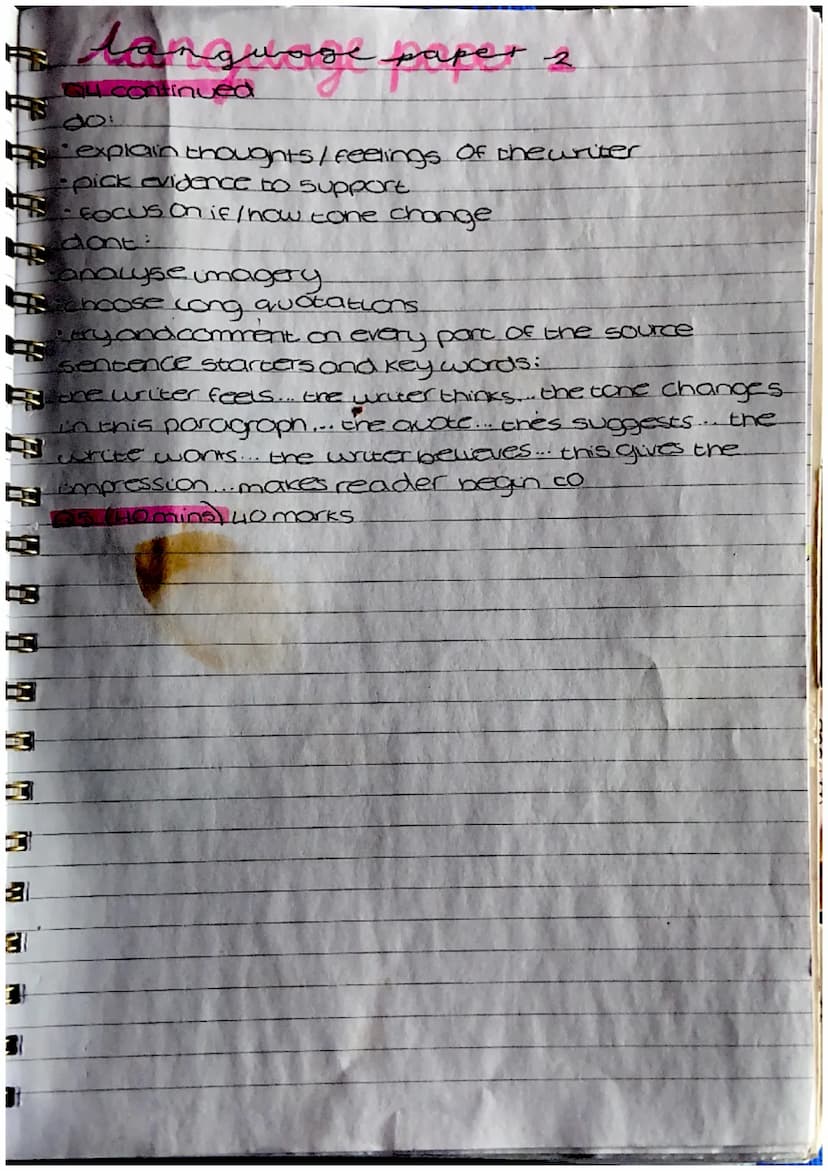 language paper 2
Q4 continued
do:
· explain thoughts/feelings of the writer
· pick evidence to support
· focus on if/how tone change
dont:
analyse imagery
choose long quotations
· try and comment on every part of the source
sentence starters and key words:
the writer feels... the writer thinks... the tone changes
in this paragraph... the quote... thes suggests... the
write works... the writer believes... this gives the
impression... makes reader begin to
Q5 (40 mins) 40 marks